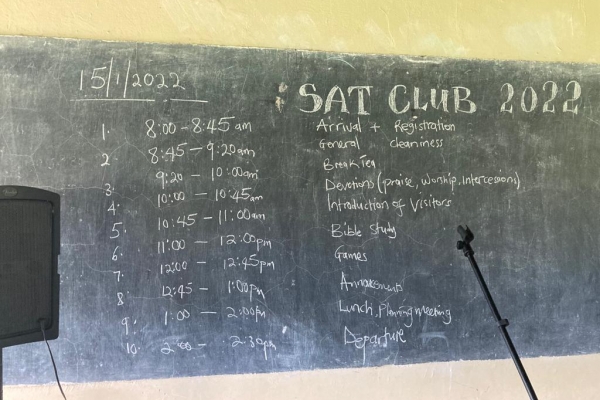 15/1/2022
SAT CLUB 2022
1. 8:00 - 8:45am Arrival + Registration
2. 8:45 - 9:20am General cleaniness
3. 9:20 - 10:00am Break Tea
4. 10:00 - 10:45am Devotions (praise, Worship, Intercessions)
5. 10:45 - 11:00am Introduction of Visitors
6. 11:00 - 12:00pm Bible Study
7. 12:00 - 12:45pm Games
8. 12:45 - 1:00pm
9. 1:00 - 2:00pm Lunch, Planning meeting
10. 2:00 - 2:30pm Departure